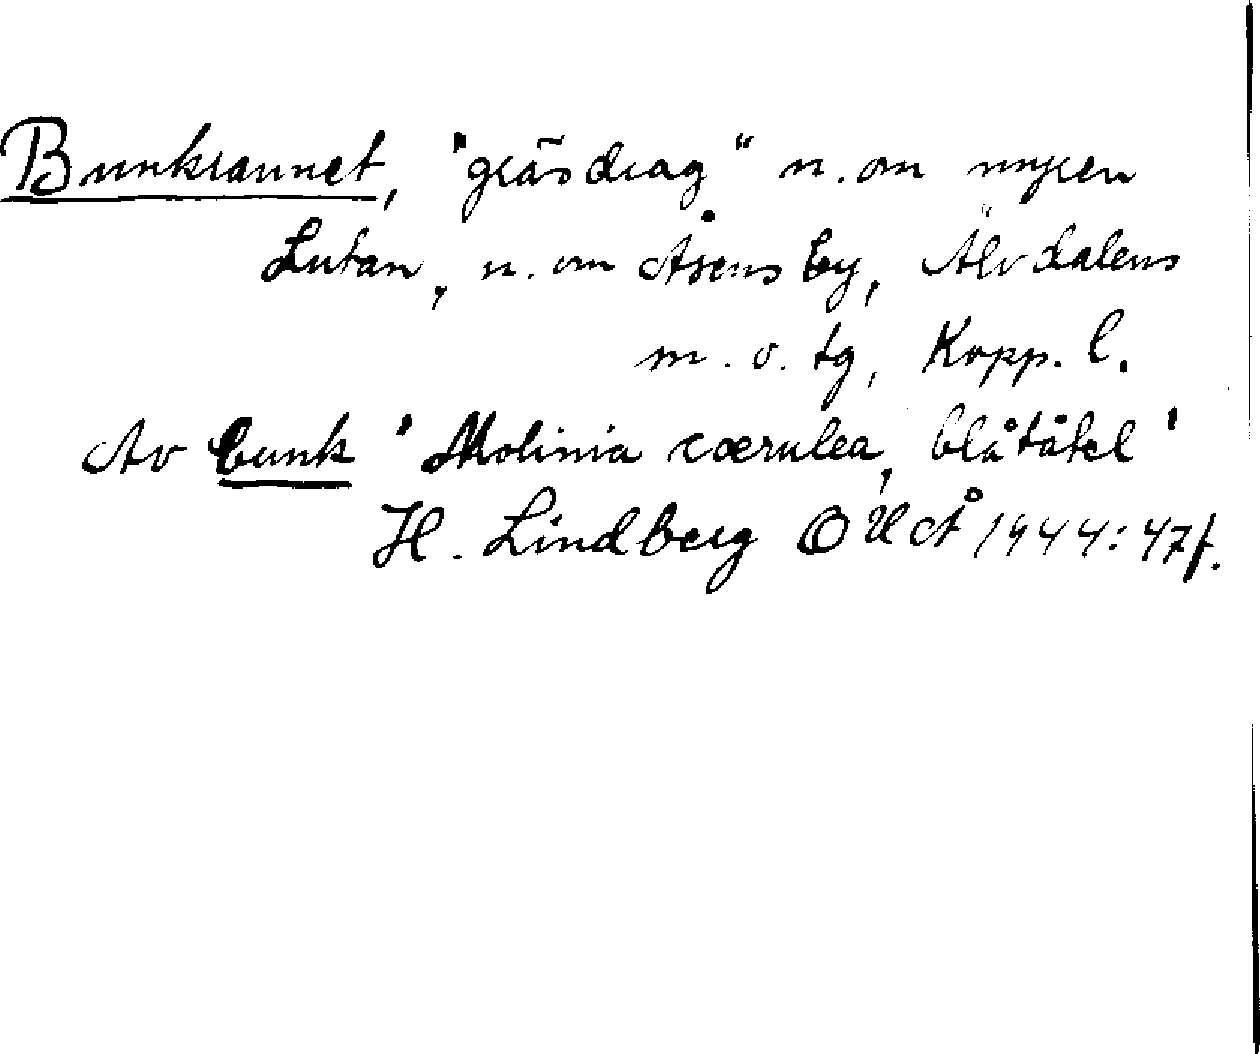 Bunkrannet, "gräsdrag" n. om myren
Lutan, n. om Åsens by, Älvdalens
m. o. tg, Kopp. l.
Av bunk 'Molinia cœrulea, blåtåtel'
H. Lindberg OUÅ 1944: 47f.